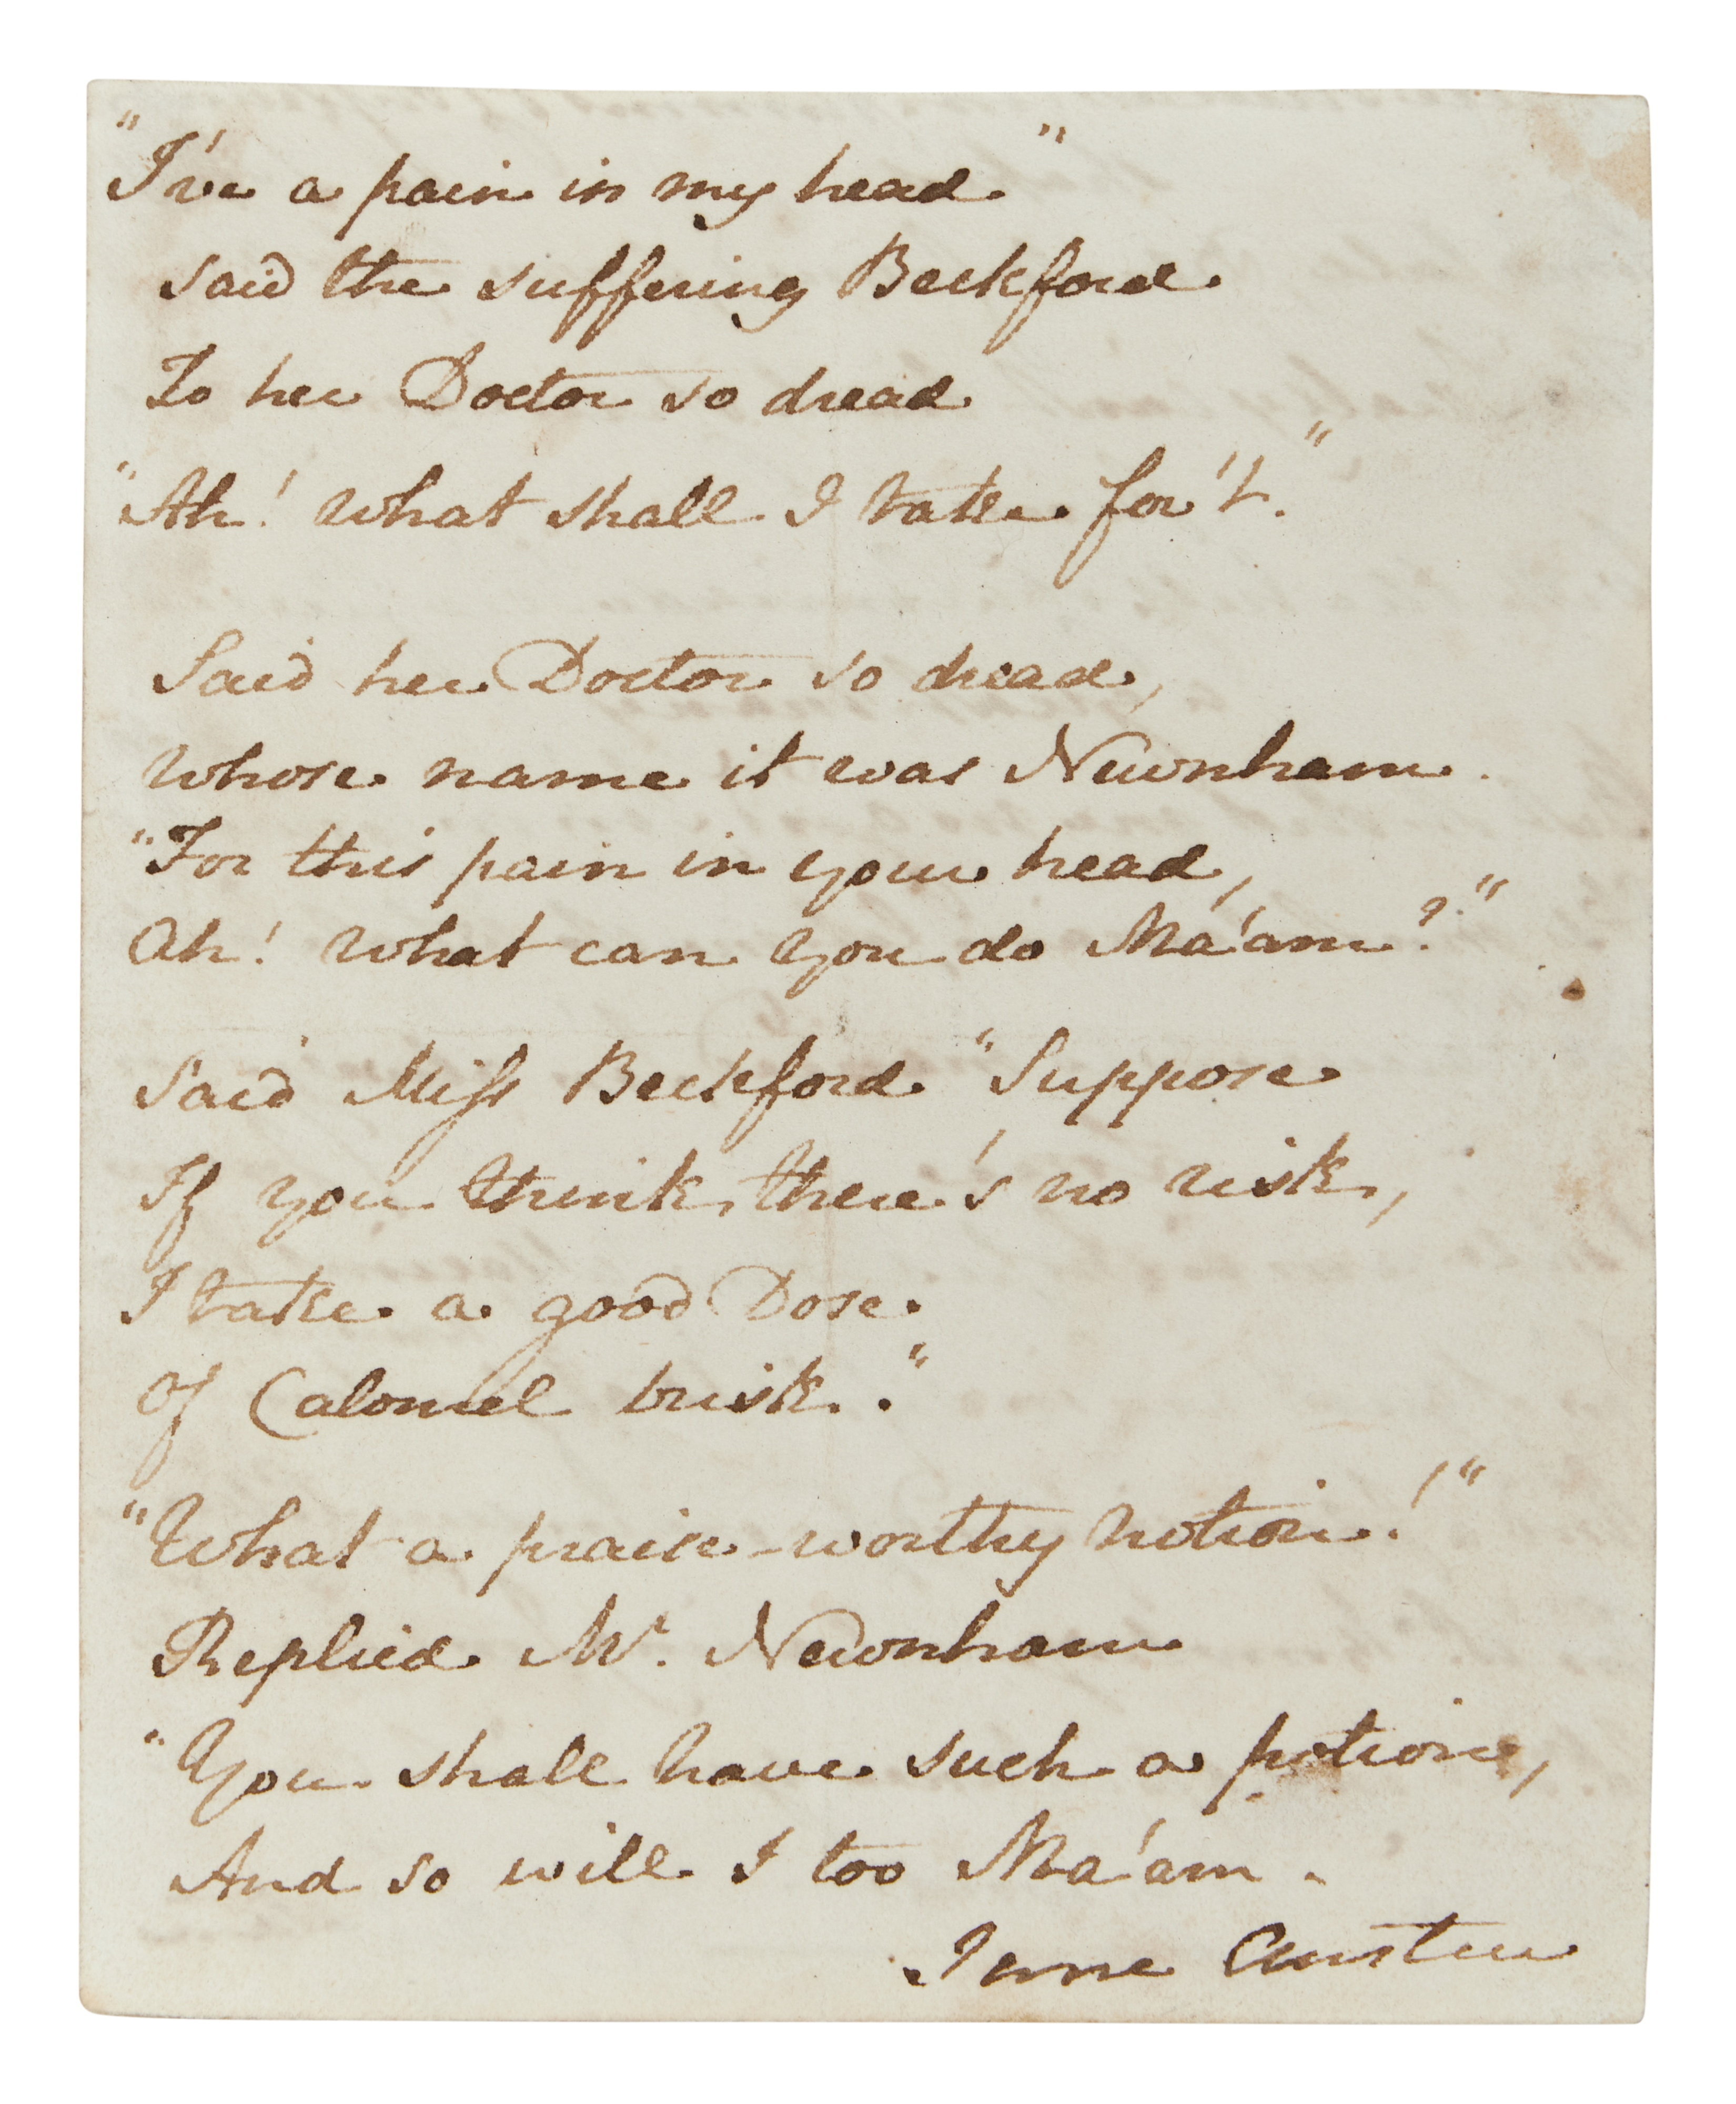 "I've a pain in my head"
said the suffering Beckford
To her Doctor so dread
"Ah! what shall I take for't."
Said her Doctor so dread,
Whose name it was Newnham.
"For this pain in your head,
Ah! what can you do Ma'am?"
Said Miſs Beckford "Suppose
If you think there's no risk,
I take a good Dose
Of Calomel brisk."
"What a praise-worthy notion!"
Replied Mr. Newnham
"You shall have such a potion,
And so will I too Ma'am.
Jane Austen